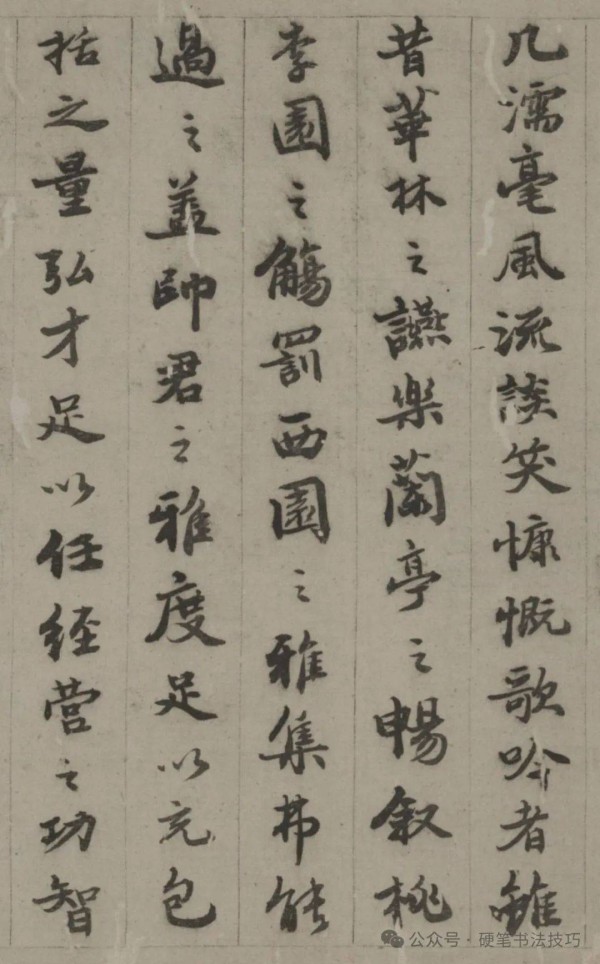 几濡毫風流談笑慷慨歌吟者雖
昔華林之讌樂蘭亭之暢叙桃
李園之觴罰西園之雅集弗能
過之蓋帥君之雅度足以充包
括之量弘才足以任經營之功智
公众号·硬笔书法技巧